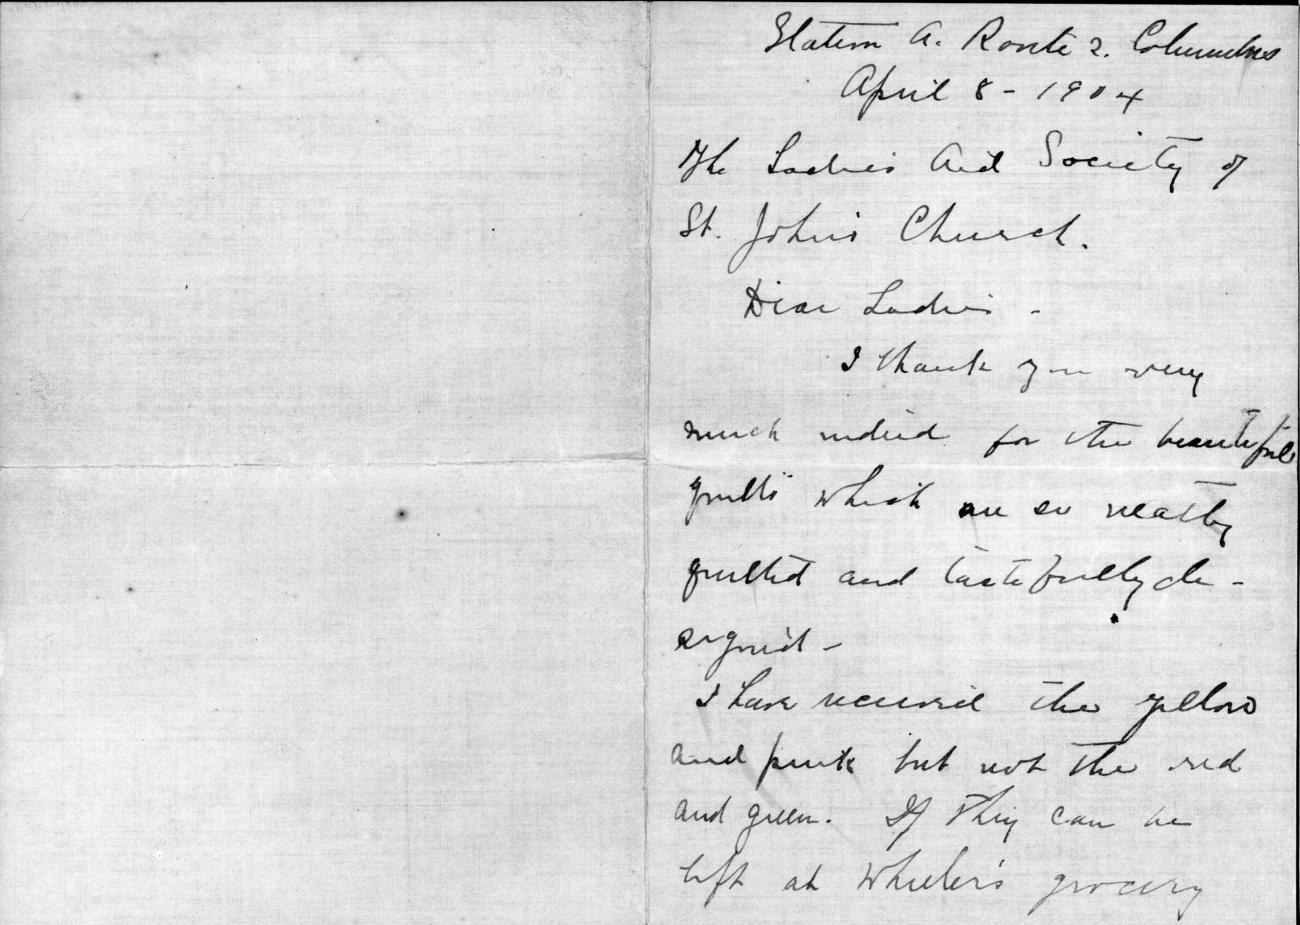 Station A. Route 2. Columbus
April 8 - 1904
The Ladies Aid Society of
St. John's Church.
Dear Ladies -
I thank you very
much indeed for the beautiful
quilts which are so neatly
quilted and tastefully de-
signed -
I have received the yellow
and pink but not the red
and green. If they can be
left at Wheeler's grocery